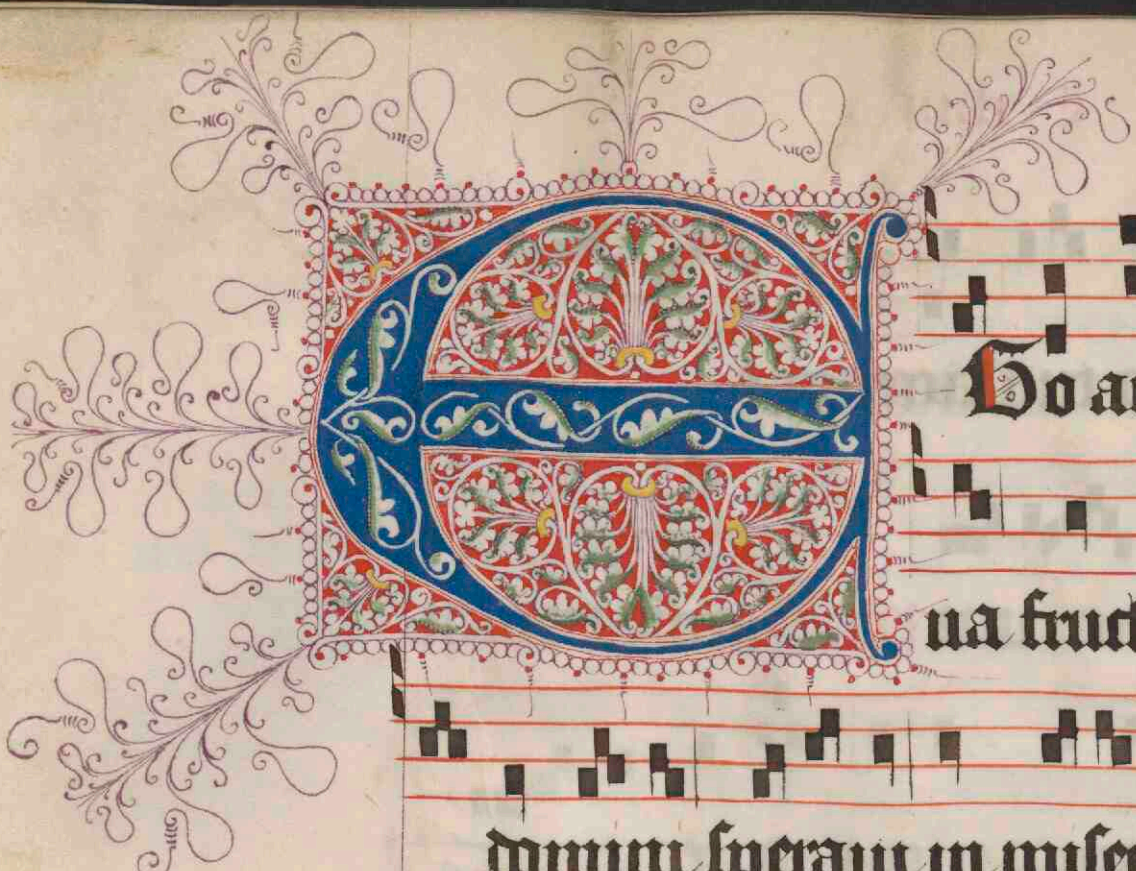 EGo au
ua fruct
domini speraui in miser